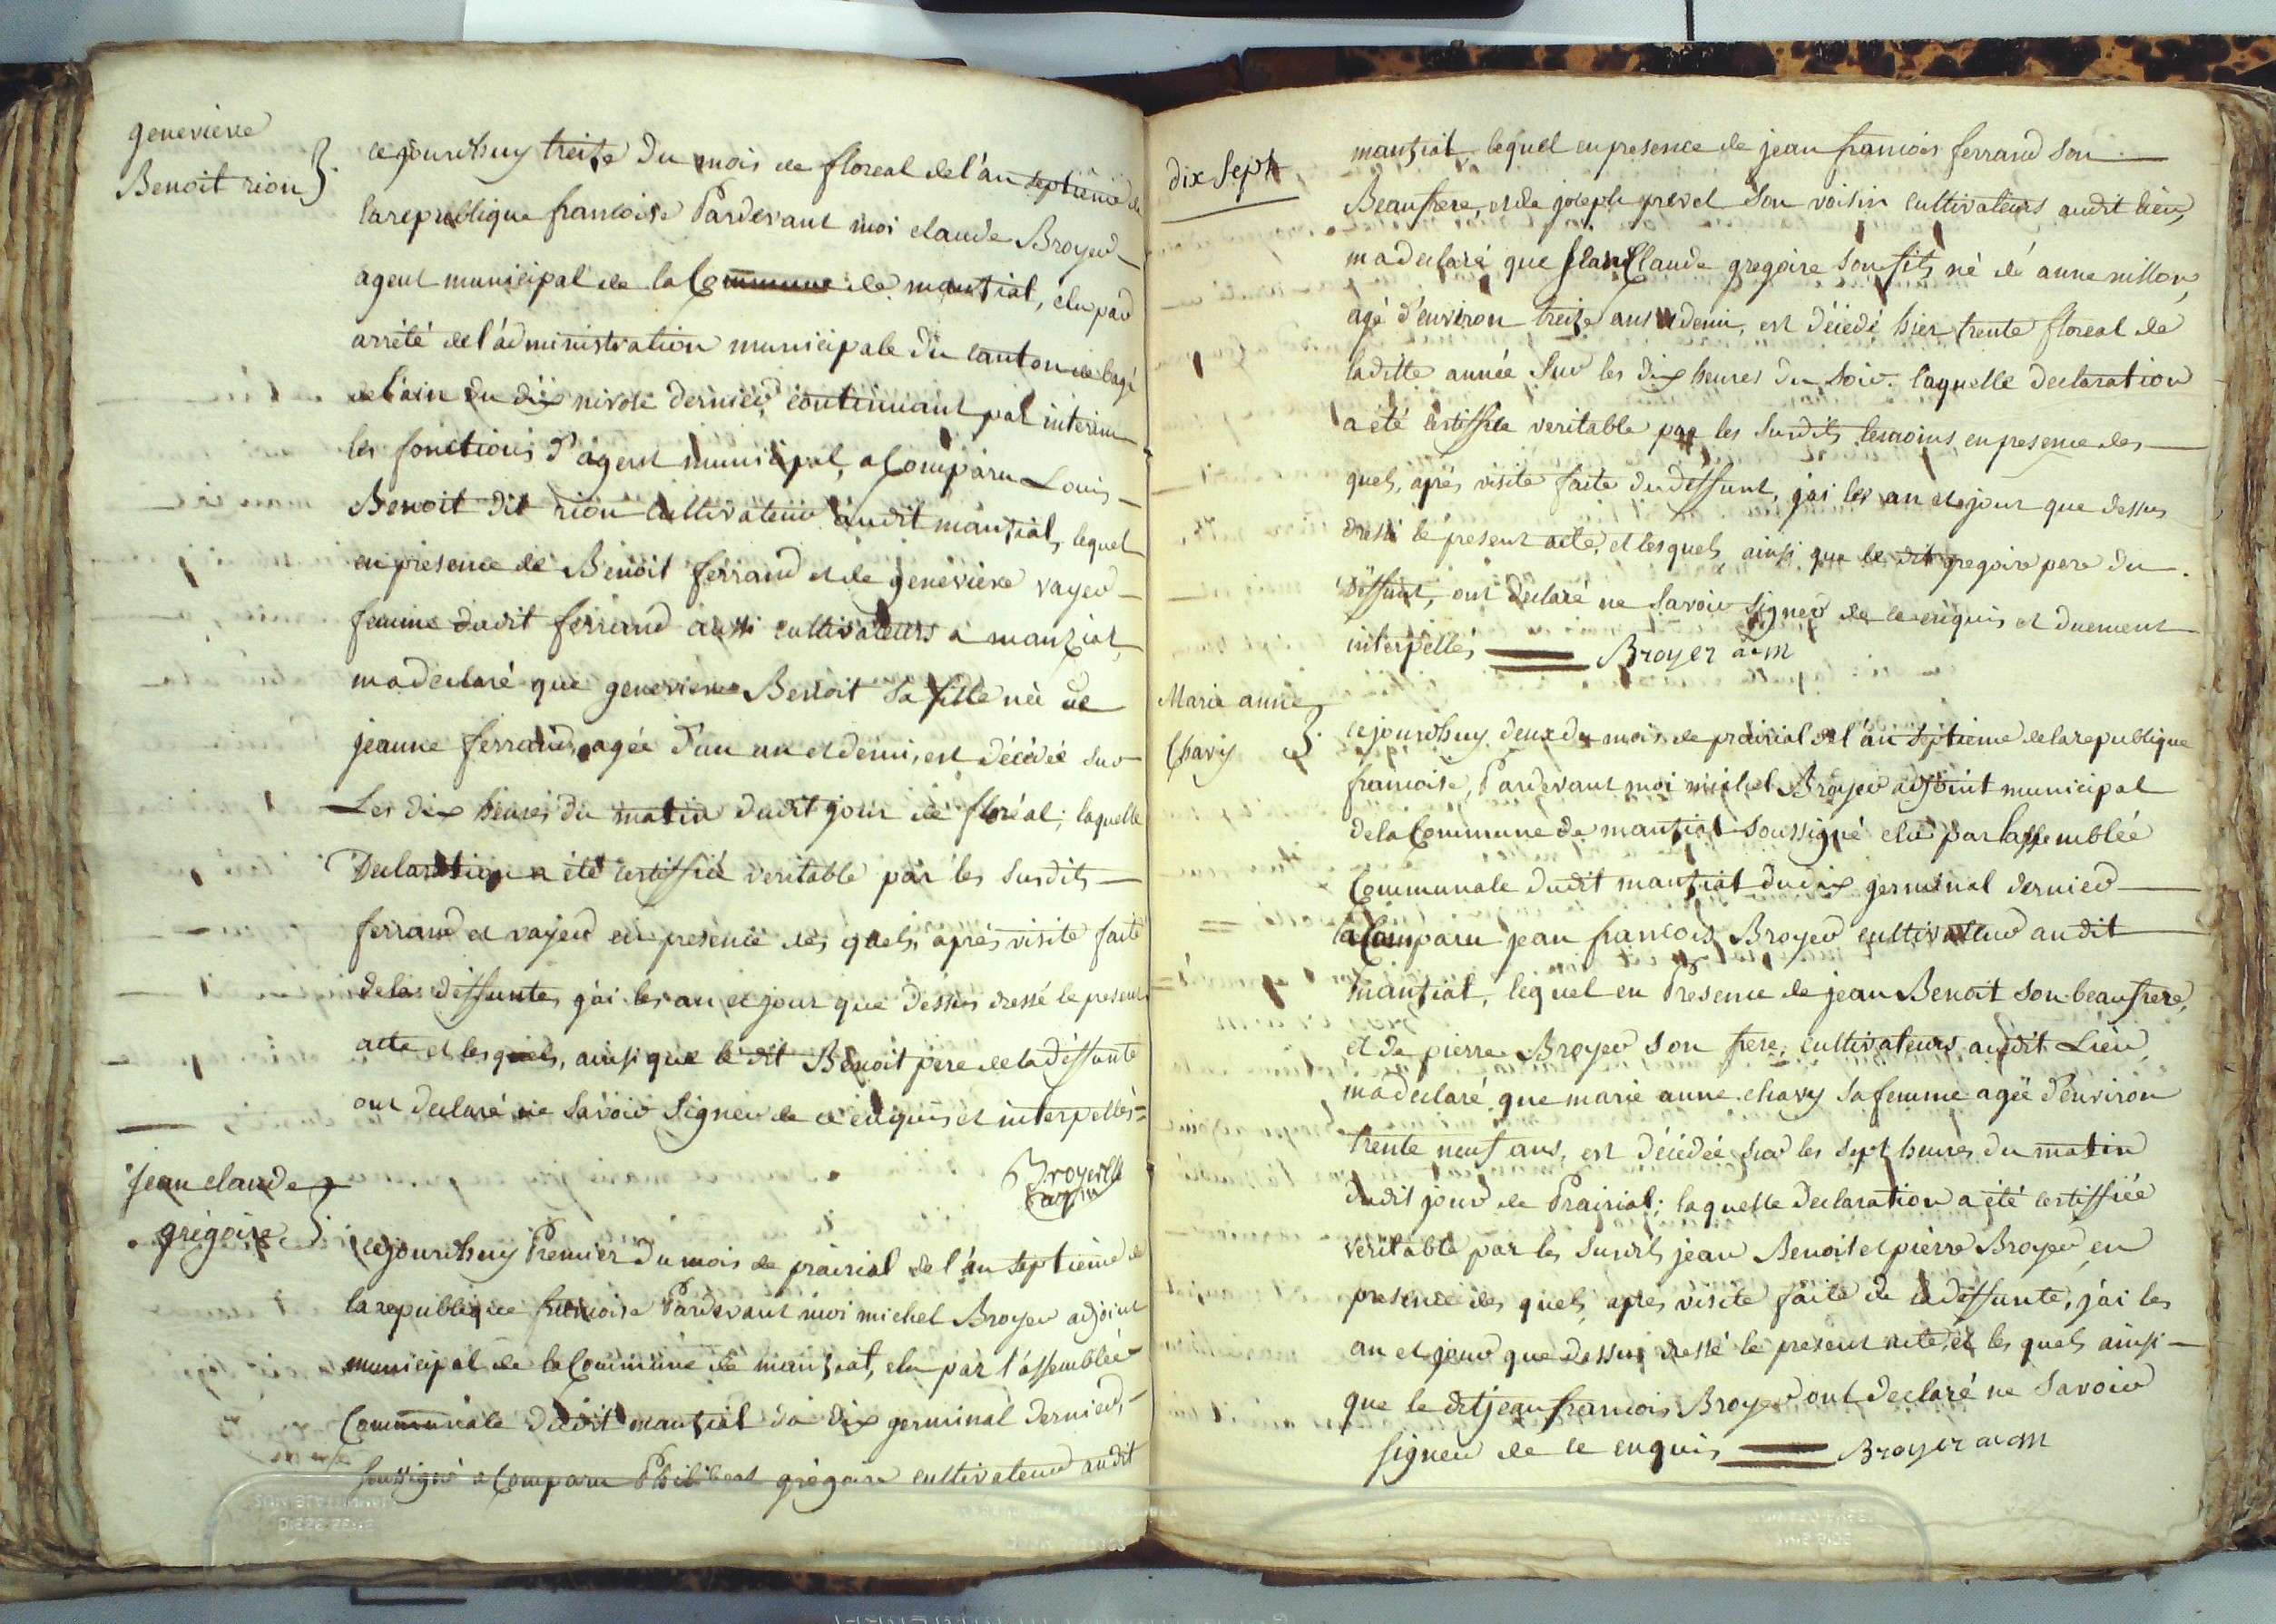 genevieve
Benoit rion
cejourdhuy treize du mois de floreal de l'an septieme de
la republique francoise Pardevant moi claude Broyer
agent municipal de la Commune de manziat, elu par
arrêté de l'administration municipale du canton de bagé
de l'ain du dix nivose dernier continuant par interim
les fonctions d'agent municipal, a Comparu Louis
Benoit dit rion cultivateur audit manziat, lequel
en présence de Benoit ferrand et de genevieve vayer
femme dudit ferrand aussi cultivateurs a manziat,
ma declaré que genevieve Benoit sa fille née de
jeanne ferrand, agée d'un an et demi, est décédée sur
Les dix heures du matin dudit jour de floréal; laquelle
Declaration a été certiffiée veritable par les susdits
ferrand et vayer en presence des quels, après visite faite
de la deffunte, j'ai les an et jour que dessus dressé le present
acte et lesquels, ainsi que le dit Benoit pere de la deffunte
ont declaré ne savoir signer de ce enquis et interpellés
Broyer
jean claude
grégoire
cejourdhuy Premier du mois de prairial de l'an septieme de
la republique francoise Pardevant moi michel Broyer adjoint
municipal de la Commune de manziat, elu par l'assemblée
Communale dudit manziat du dix germinal dernier,
soussigné a Comparu Philibert grégoire cultivateur audit
dix sept
manziat lequel en presence de jean francois ferrand son
Beaufrere, et de joseph prevel son voisin cultivateurs audit lieu,
ma declaré que jean Claude gregoire son fils né de anne nillon,
agé d'environ treize ans et demi, est décédé hier trente floreal de
laditte année sur les dix heures du soir. laquelle declaration
a été certiffiée veritable par les susdits temoins en presence des
quels, après visite faite du deffunt, j'ai les an et jour que dessus
dressé le present acte, et lesquels, ainsi que le dit gregoire pere du
deffunt, ont declaré ne savoir signer de ce enquis et duement
interpellés Broyer adm
Marie anne
Chavy
cejourdhuy deux du mois de prairial de l'an septieme de la republique
francoise, Pardevant moi michel Broyer adjoint municipal
de la Commune de manziat soussigné elu par l'assemblée
Communale dudit manziat du dix germinal dernier
a Comparu jean francois Broyer cultivateur audit
manziat, lequel en Presence de jean Benoit son beaufrere,
et de pierre Broyer son frere, cultivateurs audit Lieu,
ma declaré que marie anne chavy sa femme agée d'environ
trente neuf ans, est décédée sur les sept heures du matin
dudit jour de Prairial; laquelle declaration a été certiffiée
veritable par les susdits jean Benoit et pierre Broyer en
presence des quels, apres visite faite de la deffunte, j'ai les
an et jour que dessus dressé le present acte, et les quels ainsi
que le dit jean francois Broyer ont declaré ne savoir
signer de ce enquis Broyer adm